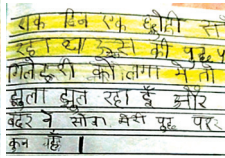 एक दिन एक छोटी स
रहा था दूसरा की पुछ प
गिलहरी को लगा में तो
झुला झुल रहा हूँ और
बंदर ने सोचा मेरी पुछ पर
कुन है।